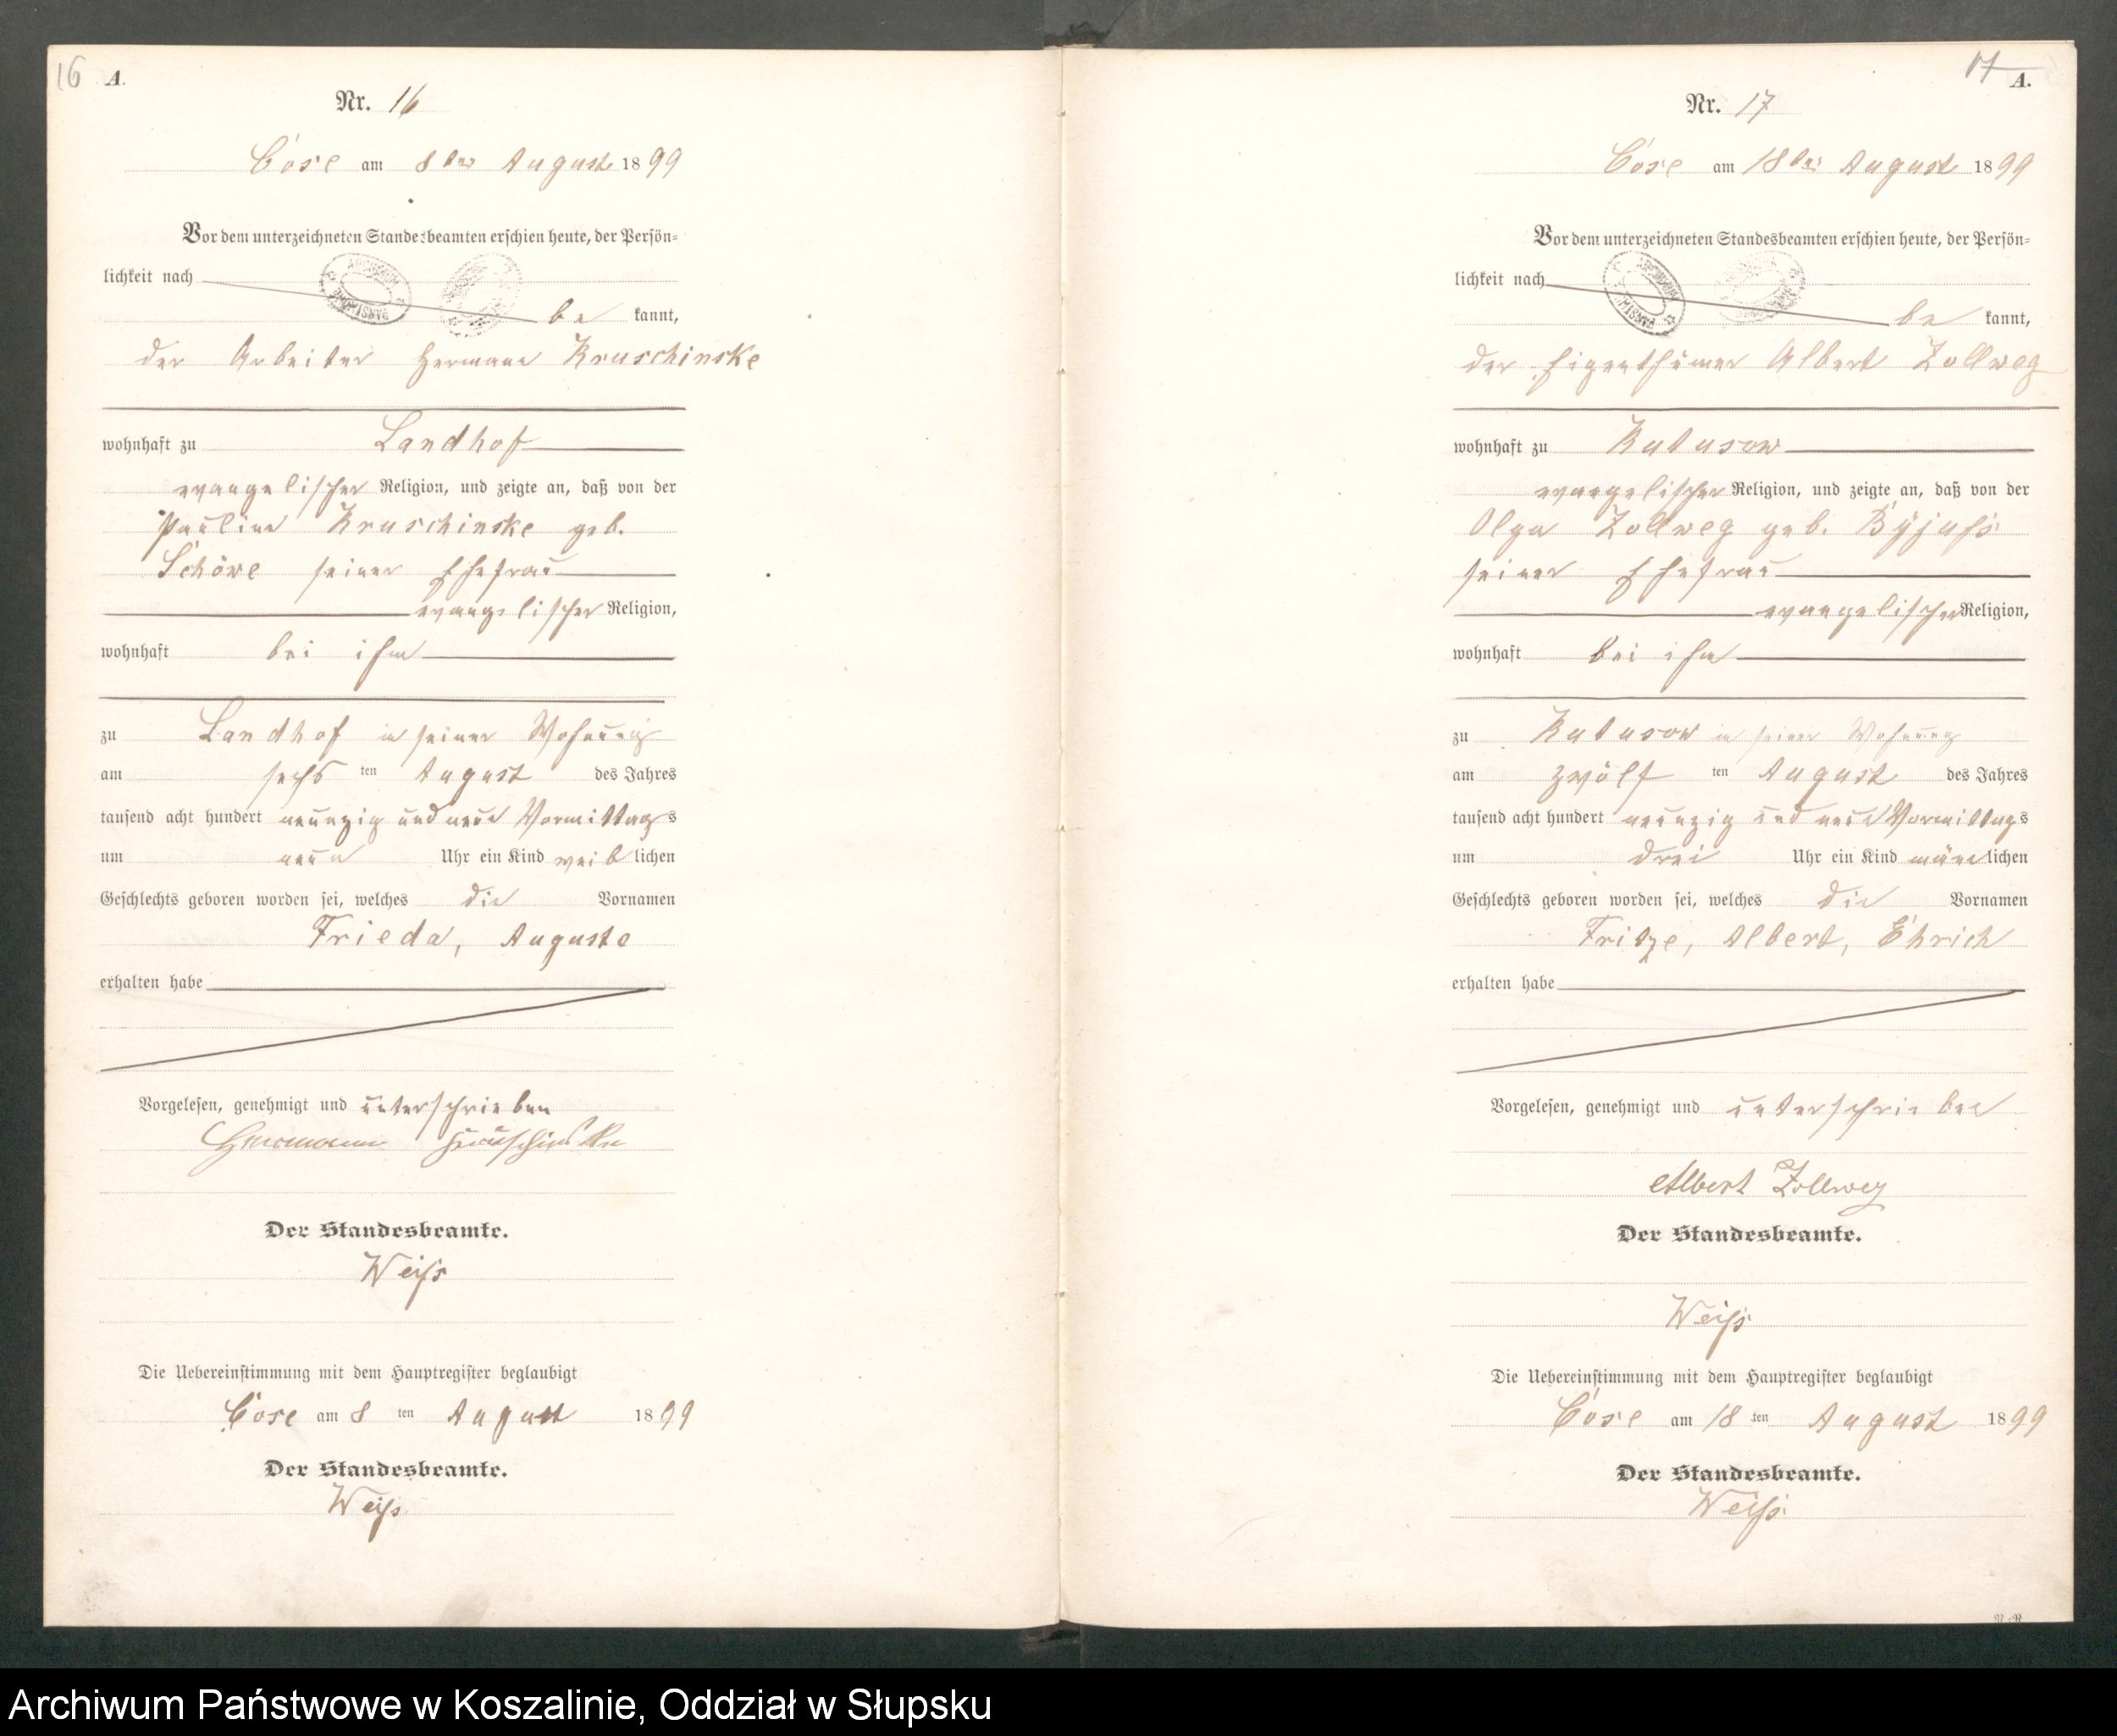 16 A.
Nr. 16
Cose am 8ten August 1899
Vor dem unterzeichneten Standesbeamten erschien heute, der Persön-
lichkeit nach
be kannt,
der Arbeiter Hermann Kruschinske
wohnhaft zu Landhof
evangelischer Religion, und zeigte an, daß von der
Pauline Kruschinske geb.
Schöwe seiner Ehefrau
evangelischer Religion,
wohnhaft bei ihm
zu Landhof in seiner Wohnung
am sechs ten August des Jahres
tausend acht hundert neunzig und neun Vormittags
um neun Uhr ein Kind weib lichen
Geschlechts geboren worden sei, welches die Vornamen
Frieda, Auguste
erhalten habe
Vorgelesen, genehmigt und unterschrieben
Hermann Kruschinske
Der Standesbeamte.
Weiß
Die Uebereinstimmung mit dem Hauptregister beglaubigt
Cose am 8 ten August 1899
Der Standesbeamte.
Weiß
17 A.
Nr. 17
Cose am 18ten August 1899
Vor dem unterzeichneten Standesbeamten erschien heute, der Persön-
lichkeit nach
be kannt,
der Eigenthümer Albert Zollweg
wohnhaft zu Katusow
evangelischer Religion, und zeigte an, daß von der
Olga Zollweg geb.
seiner Ehefrau
evangelischer Religion,
wohnhaft bei ihm
zu Katusow in seiner Wohnung
am zwölf ten August des Jahres
tausend acht hundert neunzig und neun Vormittags
um drei Uhr ein Kind männlichen
Geschlechts geboren worden sei, welches die Vornamen
Fritze, Albert, Ehrich
erhalten habe
Vorgelesen, genehmigt und unterschrieben
Albert Zollweg
Der Standesbeamte.
Weiß
Die Uebereinstimmung mit dem Hauptregister beglaubigt
Cose am 18 ten August 1899
Der Standesbeamte.
Weiß
Archiwum Państwowe w Koszalinie, Oddział w Słupsku